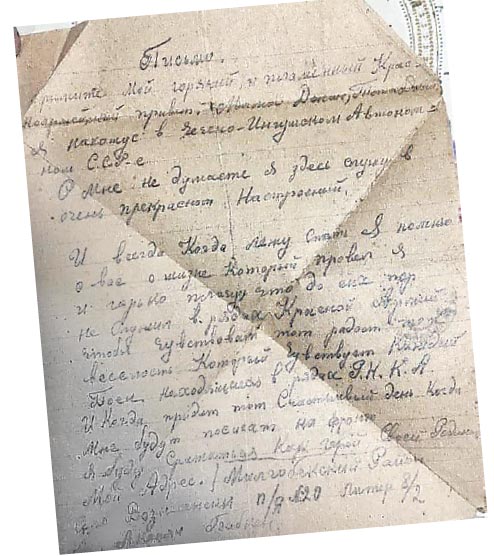 Письмо.
мой горячий, и пламенный Крас-
ноармейский привет.
Я нахожусь в Чечено-Ингушском Автоном-
ном С.С.Р-е
О мне не думайте я здесь служу в
очень прекрасном Настроений,
И всегда Когда лежу спать Я помню
о вас о жизне Который провел я
и горько плачу что до сих пор
не Служил в рядах Красной Армий
чтобы чувствовать тот радость и тот
веселость Который чувствует Каждый
Боец находящиеся в рядах Р.К.К.А
И Когда придет тот Счастливый день когда
мне будут посикать на фронт
я буду Сражаться Как герой Своей Родины
Мой Адрес. Район
п/я №20 Литер 8/2